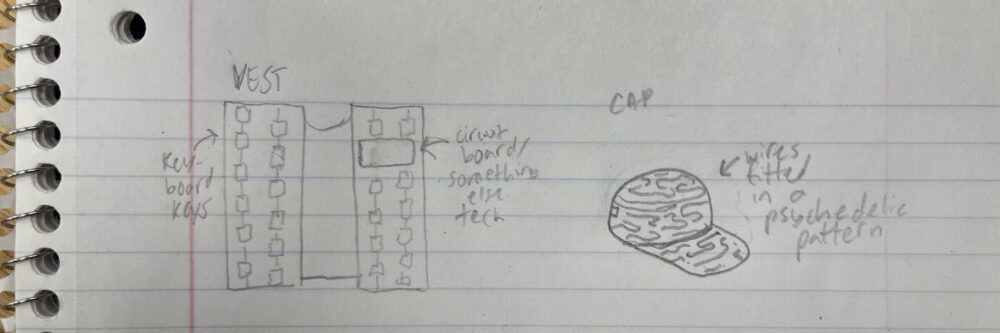 VEST
Key-
board
keys
circuit
board/
something
else
tech
CAP
wires
fitted
in a
psychedelic
pattern